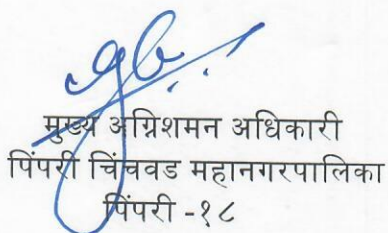 मुख्य अग्निशमन अधिकारी
पिंपरी चिंचवड महानगरपालिका
पिंपरी -१८